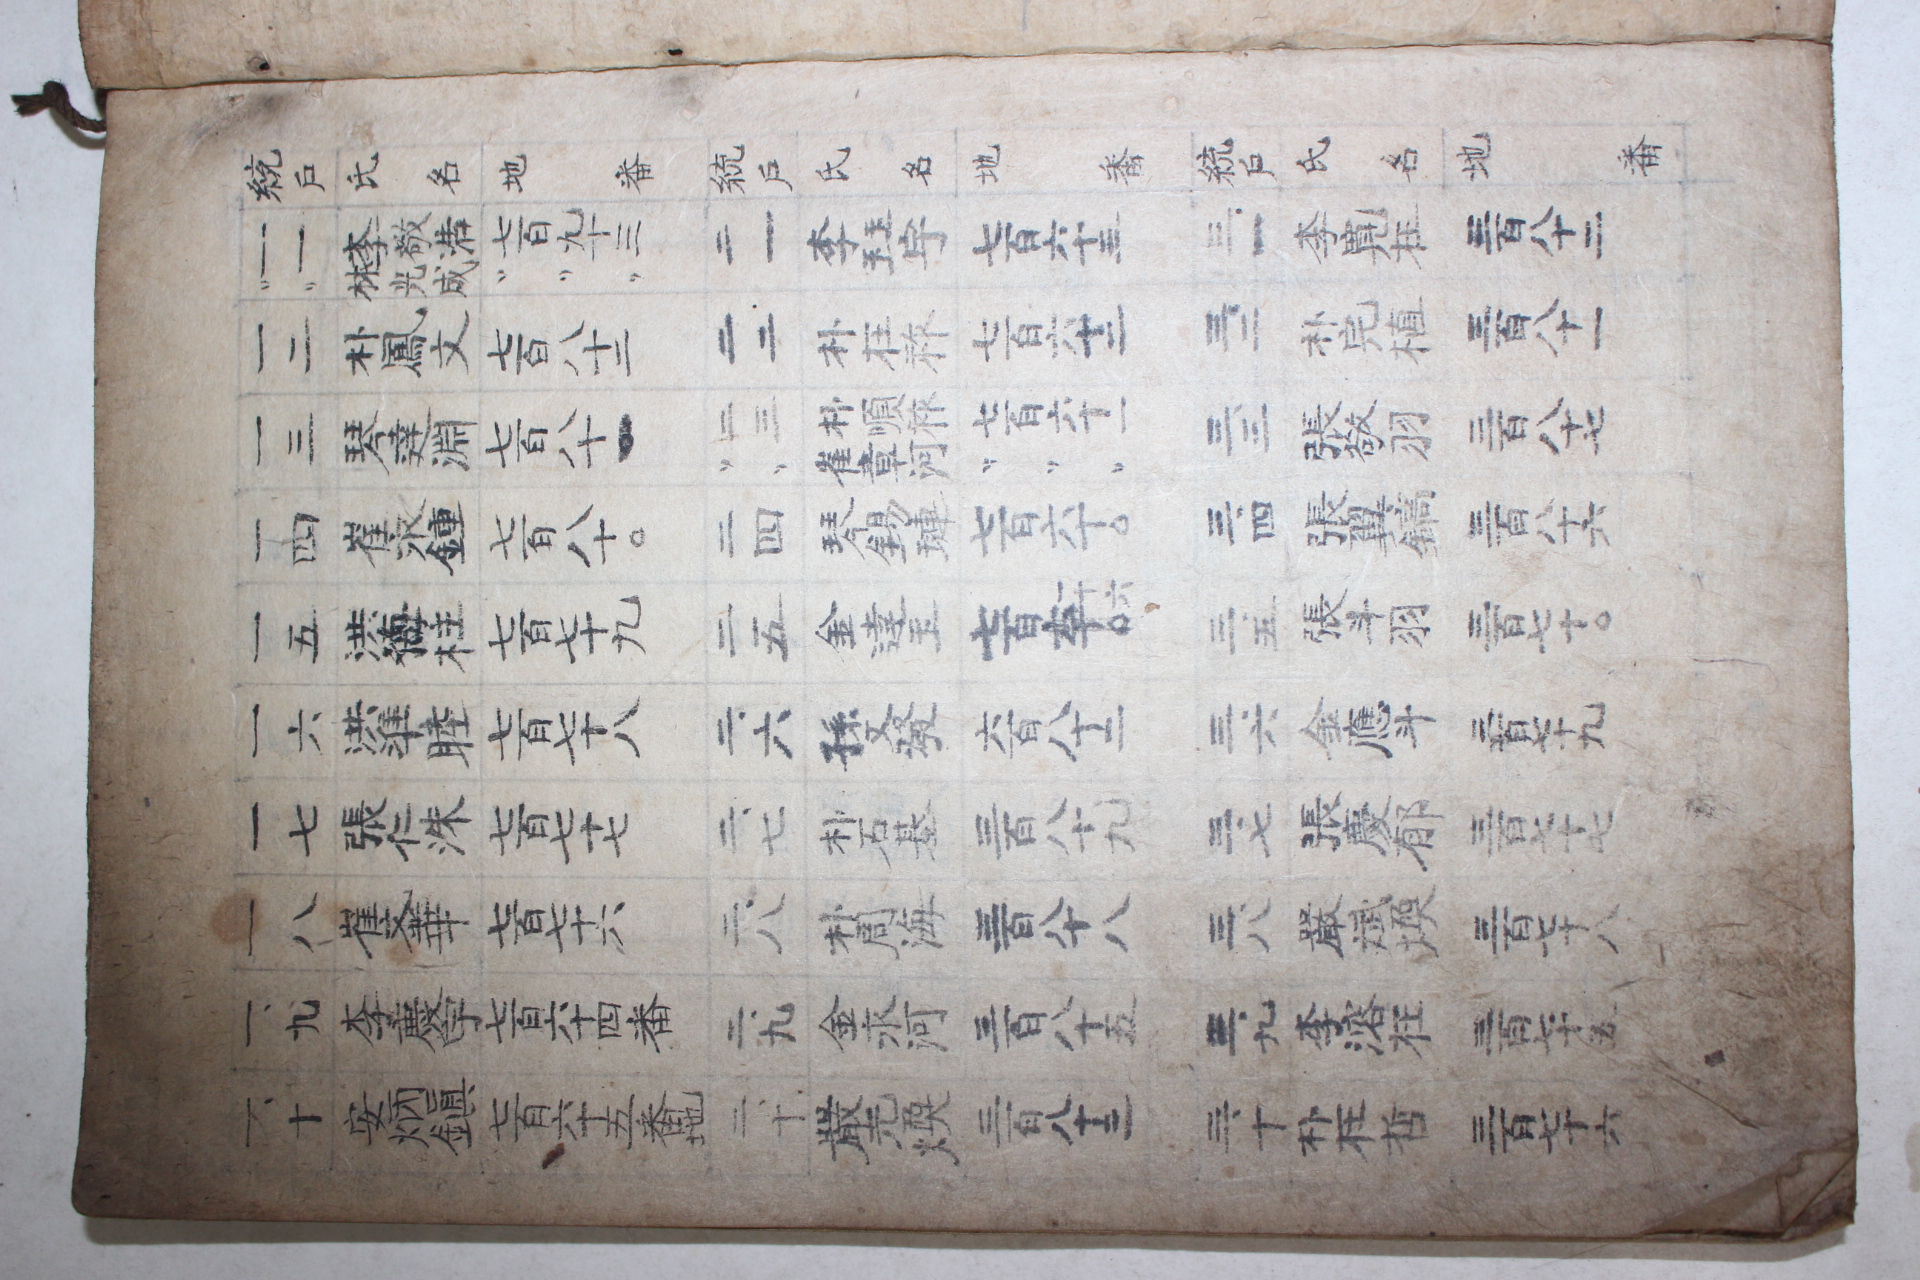 統戶 氏名 地番 統戶 氏名 地番 統戶 氏名 地番
一一 李敬浩 七百九十三 二一 李珏宇 七百六十三 三、一 李寬枉 三百八十二
〃〃 林光成 〃〃〃
一二 朴鳳文 七百八十二 二二 朴枉秨 七百六十二 三、二 朴完植 三百八十一
一三 琴達淵 七百八十一 二三 朴順秨 七百六十一 三、三 張敬羽 三百八十七
〃〃 崔章河 〃〃〃
一四 崔永鍾 七百八十〇 二四 琴錫璉 七百六十〇 三、四 張翼鎬 三百八十六
一五 洪德柱 七百七十九 二五 金達玉 七百 一十六 三、五 張斗羽 三百七十〇
一六 洪準睦 七百七十八 二、六 孫文發 六百八十二 三、六 金應斗 三百七十九
一七 張仁洙 七百七十七 二、七 朴石基 三百八十九 三、七 張慶郁 三百七十七
一八 崔文華 七百七十六 二、八 朴周海 三百八十八 三、八 嚴斌煥 三百七十八
一、九 李慶宇 七百六十四番 二、九 金永河 三百八十五 三、九 李溶枉 三百七十五
一、十 安炳鎭 七百六十五番地 二、十 嚴光煥 三百八十三 三、十 朴枉哲 三百七十六